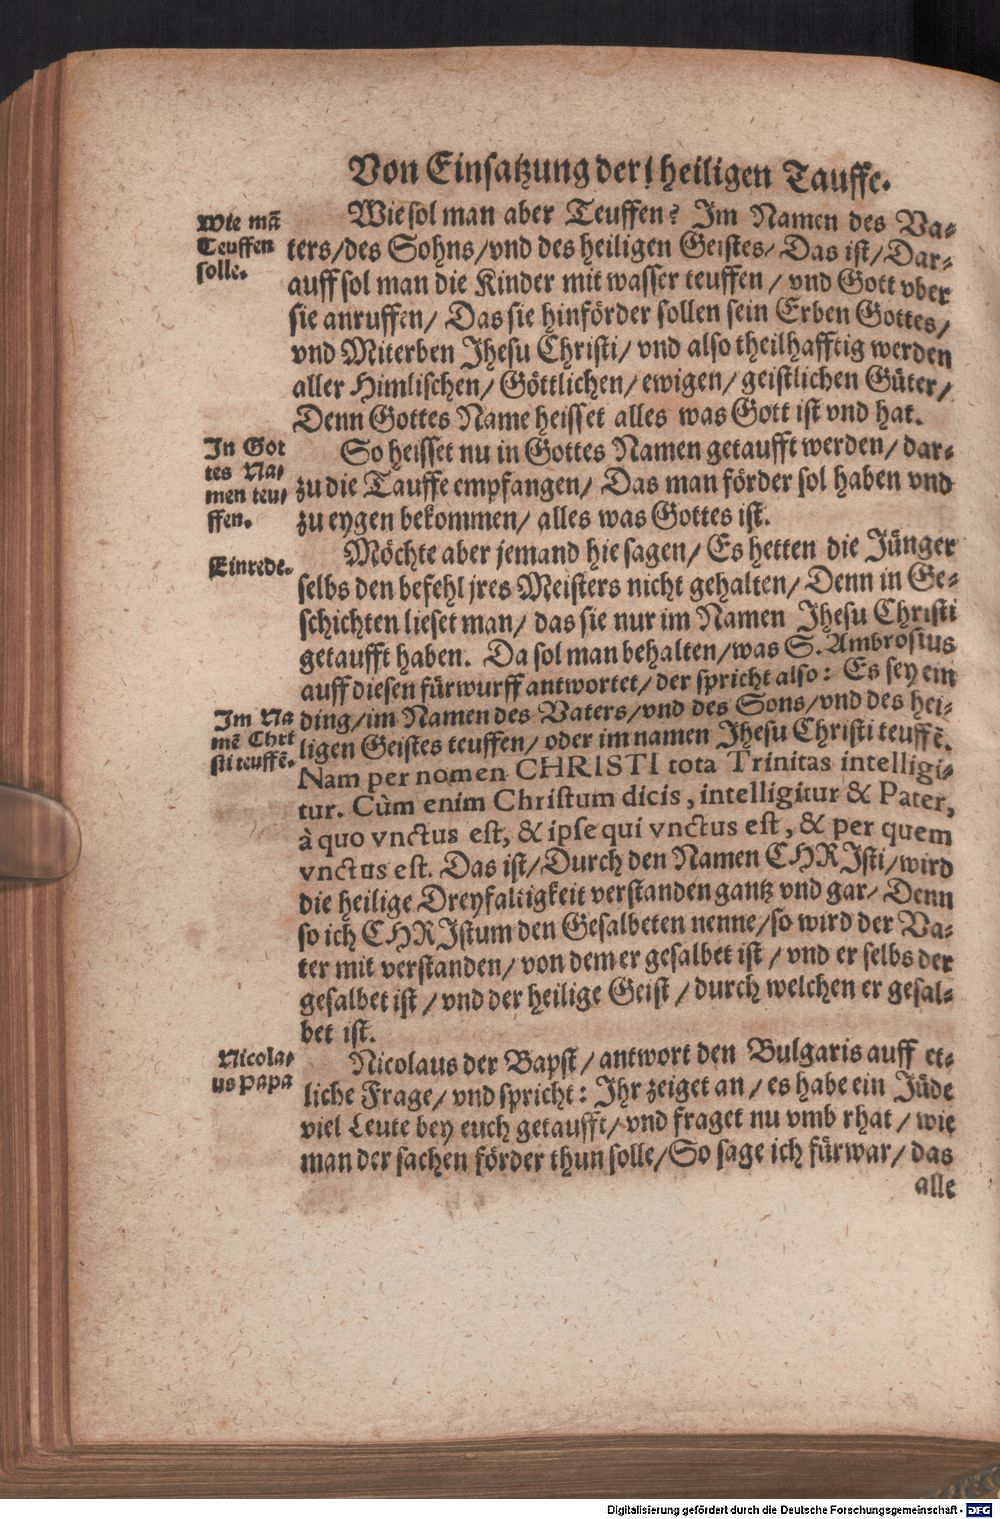 Von Einsatzung der heiligen Tauffe.
Wie mã
Teuffen
solle.
Wie sol man aber Teuffen? Im Namen des Va-
ters/des Sohns/vnd des heiligen Geistes/ Das ist/ Dar-
auff sol man die Kinder mit wasser teuffen / vnd Gott vber
sie anruffen/ Das sie hinförder sollen sein Erben Gottes/
vnd Miterben Jhesu Christi/ vnd also theilhafftig werden
aller Himlischen/ Göttlichen/ ewigen/ geistlichen Güter/
Denn Gottes Name heisset alles was Gott ist vnd hat.
In Got
tes Na-
men teu-
ffen.
So heisset nu in Gottes Namen getaufft werden/ dar-
zu die Tauffe empfangen/ Das man förder sol haben vnd
zu eygen bekommen/ alles was Gottes ist.
Einrede.
Möchte aber jemand hie sagen/ Es hetten die Jünger
selbs den befehl jres Meisters nicht gehalten/ Denn in Ge-
schichten lieset man/ das sie nur im Namen Jhesu Christi
getaufft haben. Da sol man behalten/was S. Ambrosius
auff diesen fürwurff antwortet/ der spricht also: Es sey ein
Im Na
mẽ Chri
sti teuffẽ.
ding/im Namen des Vaters/vnd des Sons/vnd des hei-
ligen Geistes teuffen/ oder im namen Jhesu Christi teuffẽ.
Nam per nomen CHRISTI tota Trinitas intelligi-
tur. Cùm enim Christum dicis, intelligitur & Pater,
à quo vnctus est, & ipse qui vnctus est, & per quem
vnctus est. Das ist/ Durch den Namen CHRJsti/wird
die heilige Dreyfaltigkeit verstanden gantz vnd gar/ Denn
so ich CHRJstum den Gesalbeten nenne/so wird der Va-
ter mit verstanden/ von dem er gesalbet ist / vnd er selbs der
gesalbet ist / vnd der heilige Geist / durch welchen er gesal-
bet ist.
Nicola-
us papa
Nicolaus der Bapst / antwort den Bulgaris auff et-
liche Frage/ vnd spricht: Ihr zeiget an / es habe ein Jüde
viel Leute bey euch getaufft/ vnd fraget nu vmb rhat / wie
man der sachen förder thun solle/So sage ich fürwar/ das
alle
Digitalisierung gefördert durch die Deutsche Forschungsgemeinschaft - DFG